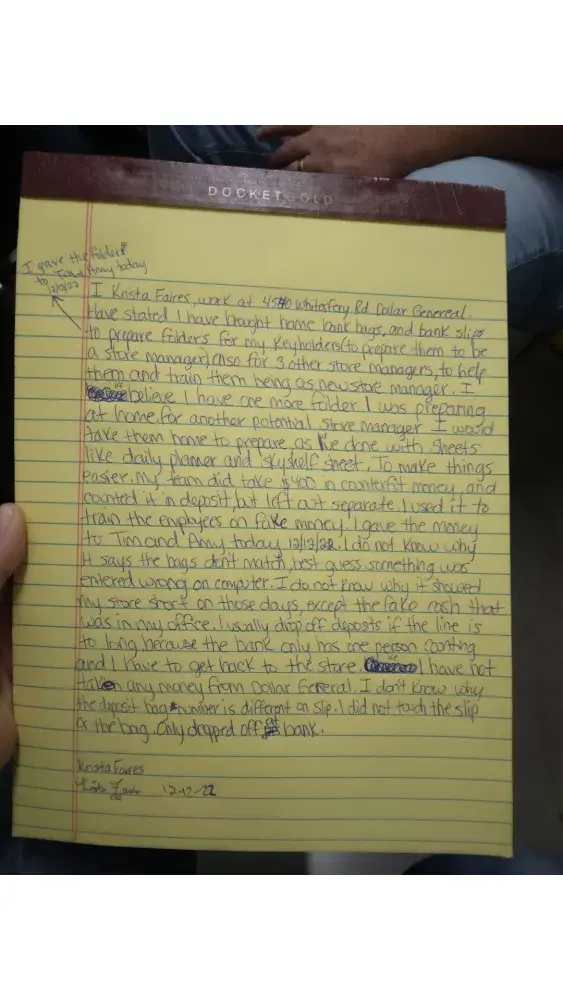 DOCKET GOLD
I gave the folder
to Tim and Amy today
12/12/22
I Krista Faires, work at 4540 Whitesferry Rd Dollar Genereal.
Have stated I have brought home bank bags, and bank slips
to prepare folders for my Keyholders(to prepare them to be
a store manager), also for 3 other store managers, to help
them and train them being as new store manager. I
believe I have one more folder I was preparing
at home, for another potential store manager I would
take them home to prepare as I've done with sheets
like daily planner and skyshelf sheet. To make things
easier. My team did take $400 in counterfit money, and
counted it in deposit, but left out separate. I used it to
train the employees on fake money. I gave the money
to Tim and Amy today 12/12/22. I do not know why
it says the bags don't match, best guess something was
entered wrong on computer. I do not know why it showed
my store short on those days, except the fake cash that
was in my office. I usually drop off deposits if the line is
to long, because the bank only has one person counting
and I have to get back to the store. I have not
taken any money from Dollar General. I don't know why
the deposit bag number is different on slip. I did not touch the slip
or the bag. Only dropped off at bank.
Krista Faires
12-12-22